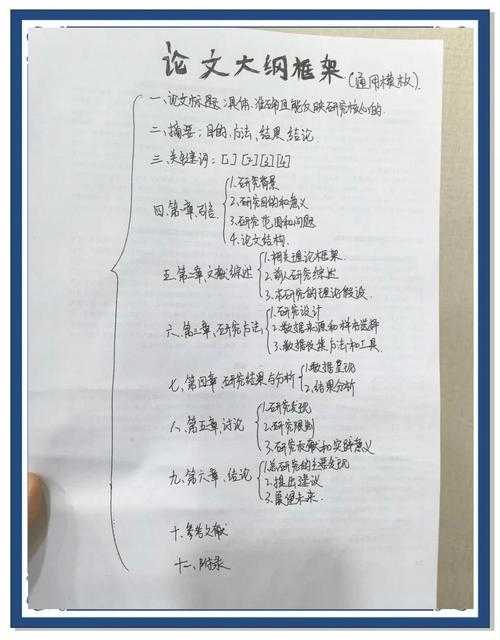 论文大纲框架(通用模板).
一、论文标题:具体、准确且能反映研究核心的.
二、摘要:目的、方法、结果、结论
三、关键词:[1] [2] [3] [4]
四、第一章,引言
1.研究背景
2.研究目的和意义
3.研究范围和问题
4.论文结构.
五、第二章,文献综述
1.相关理论框架.
2.前人研究综述
3.本研究的理论假设.
六、第三章、研究方法
1.研究设计
2.数据来源和样本选择
3.数据收集方法和工具.
七、第四章 研究结果与分析
1.数据呈现
2.结果分析
八、第五章、讨论
1.研究发现
2.研究限制
3.研究贡献和实践意义
九、第六章、结论
1.总研究的主要发现
2.提出建议
3.展望未来.
十、参考文献
十一、附录